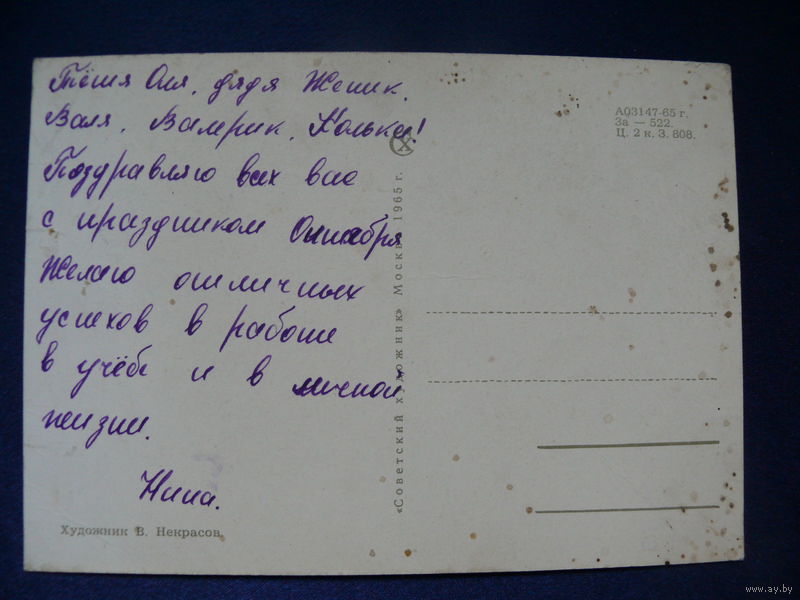 Тётя Оля, дядя Женик,
Валя, Валерик, Колька!
Поздравляю всех вас
с праздником Октября
Желаю отличных
успехов в работе
в учёбе и в личной
жизни.
Нина.
Художник В. Некрасов.
«Советский художник» Москва 1965 г.
А03147-65 г.
За — 522.
Ц. 2 к. З. 808.
www.ay.by